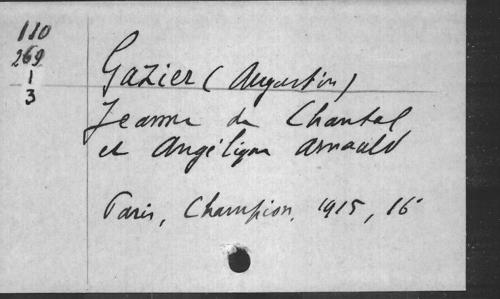 110
269
1
3
Gazier (Augustin)
Jeanne de Chantal
et Angélique Arnauld
Paris, Champion, 1915, 16°